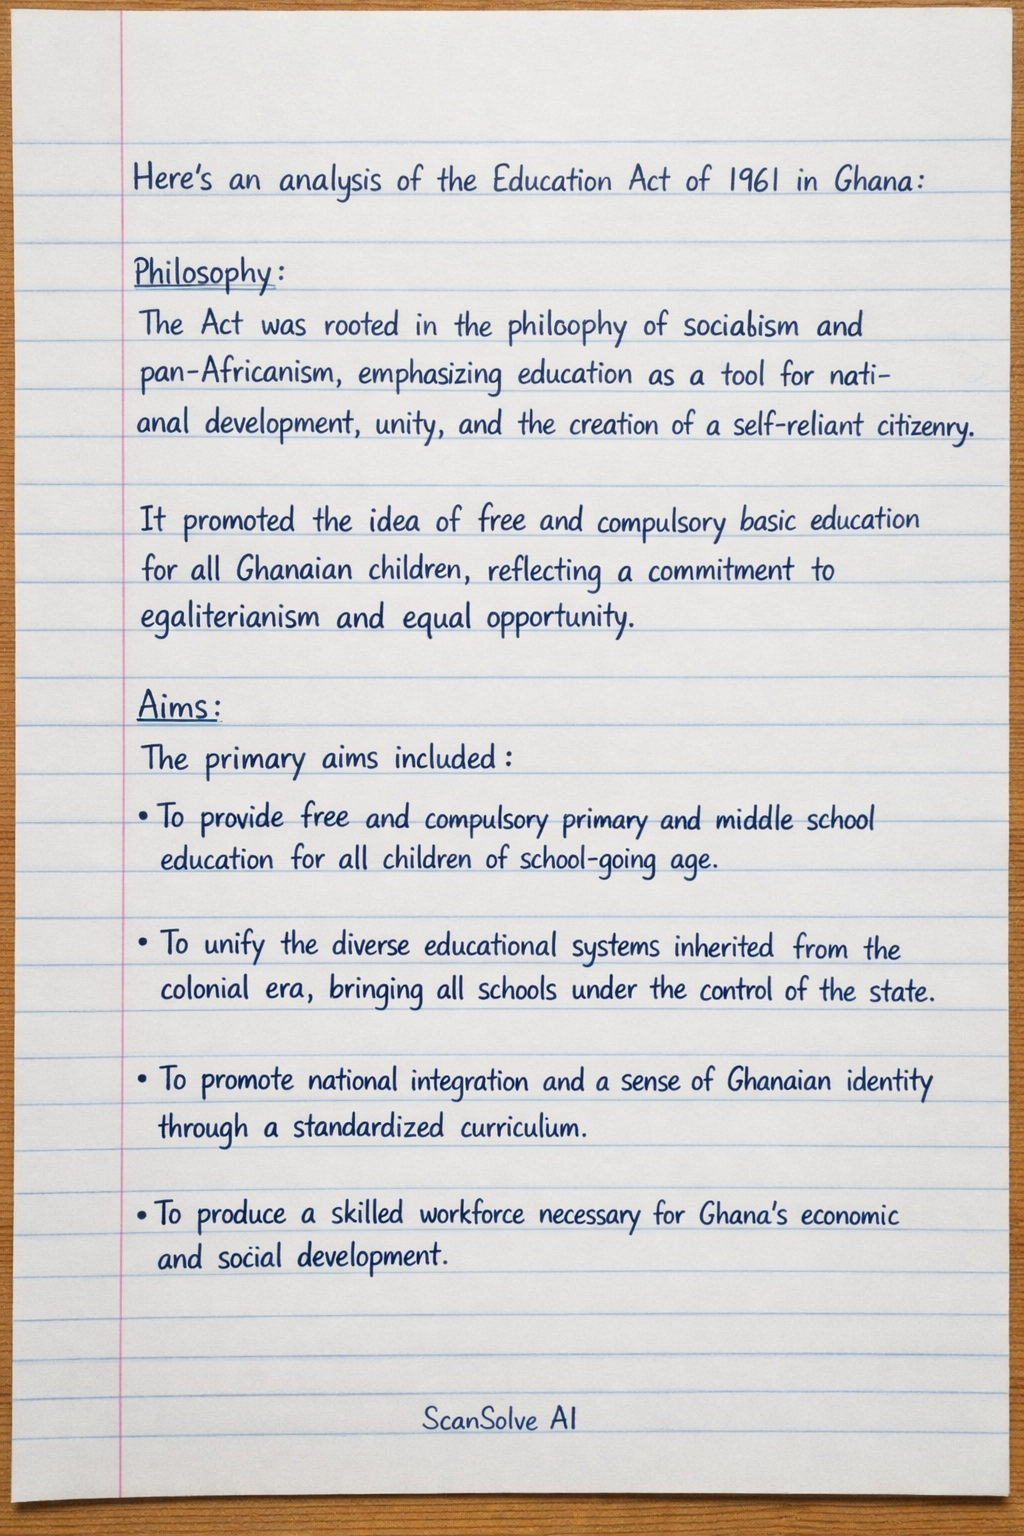 Here's an analysis of the Education Act of 1961 in Ghana:
Philosophy:
The Act was rooted in the philoophy of sociabism and
pan-Africanism, emphasizing education as a tool for nati-
anal development, unity, and the creation of a self-reliant citizenry.
It promoted the idea of free and compulsory basic education
for all Ghanaian children, reflecting a commitment to
egaliterianism and equal opportunity.
Aims:
The primary aims included:
• To provide free and compulsory primary and middle school
education for all children of school-going age.
• To unify the diverse educational systems inherited from the
colonial era, bringing all schools under the control of the state.
• To promote national integration and a sense of Ghanaian identity
through a standardized curriculum.
• To produce a skilled workforce necessary for Ghana's economic
and social development.
ScanSolve AI